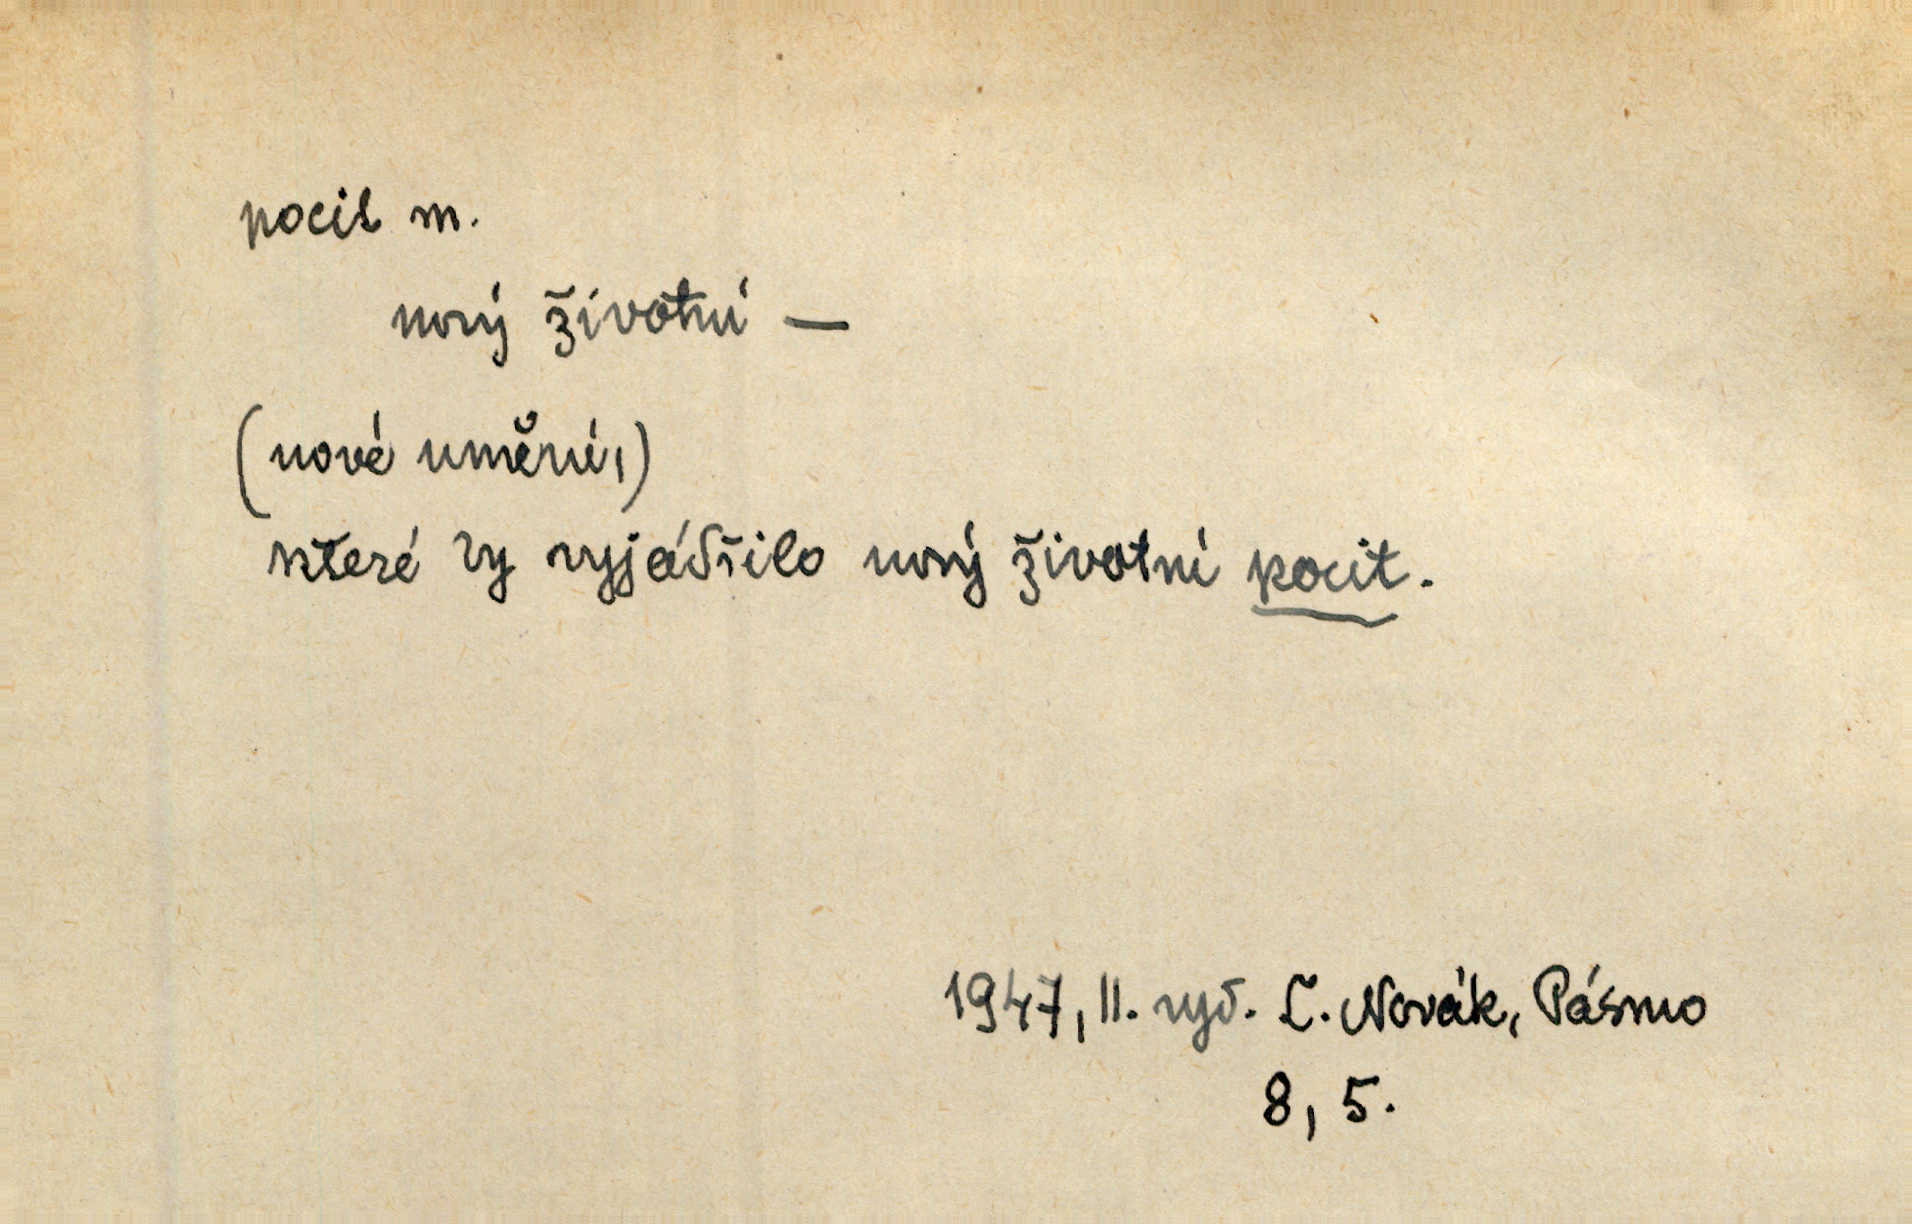 pocit m.
nový životní —
(nové umění,)
které by vyjádřilo nový životní pocit.
1947, II. vyd. L. Novák, Pásmo
8, 5.